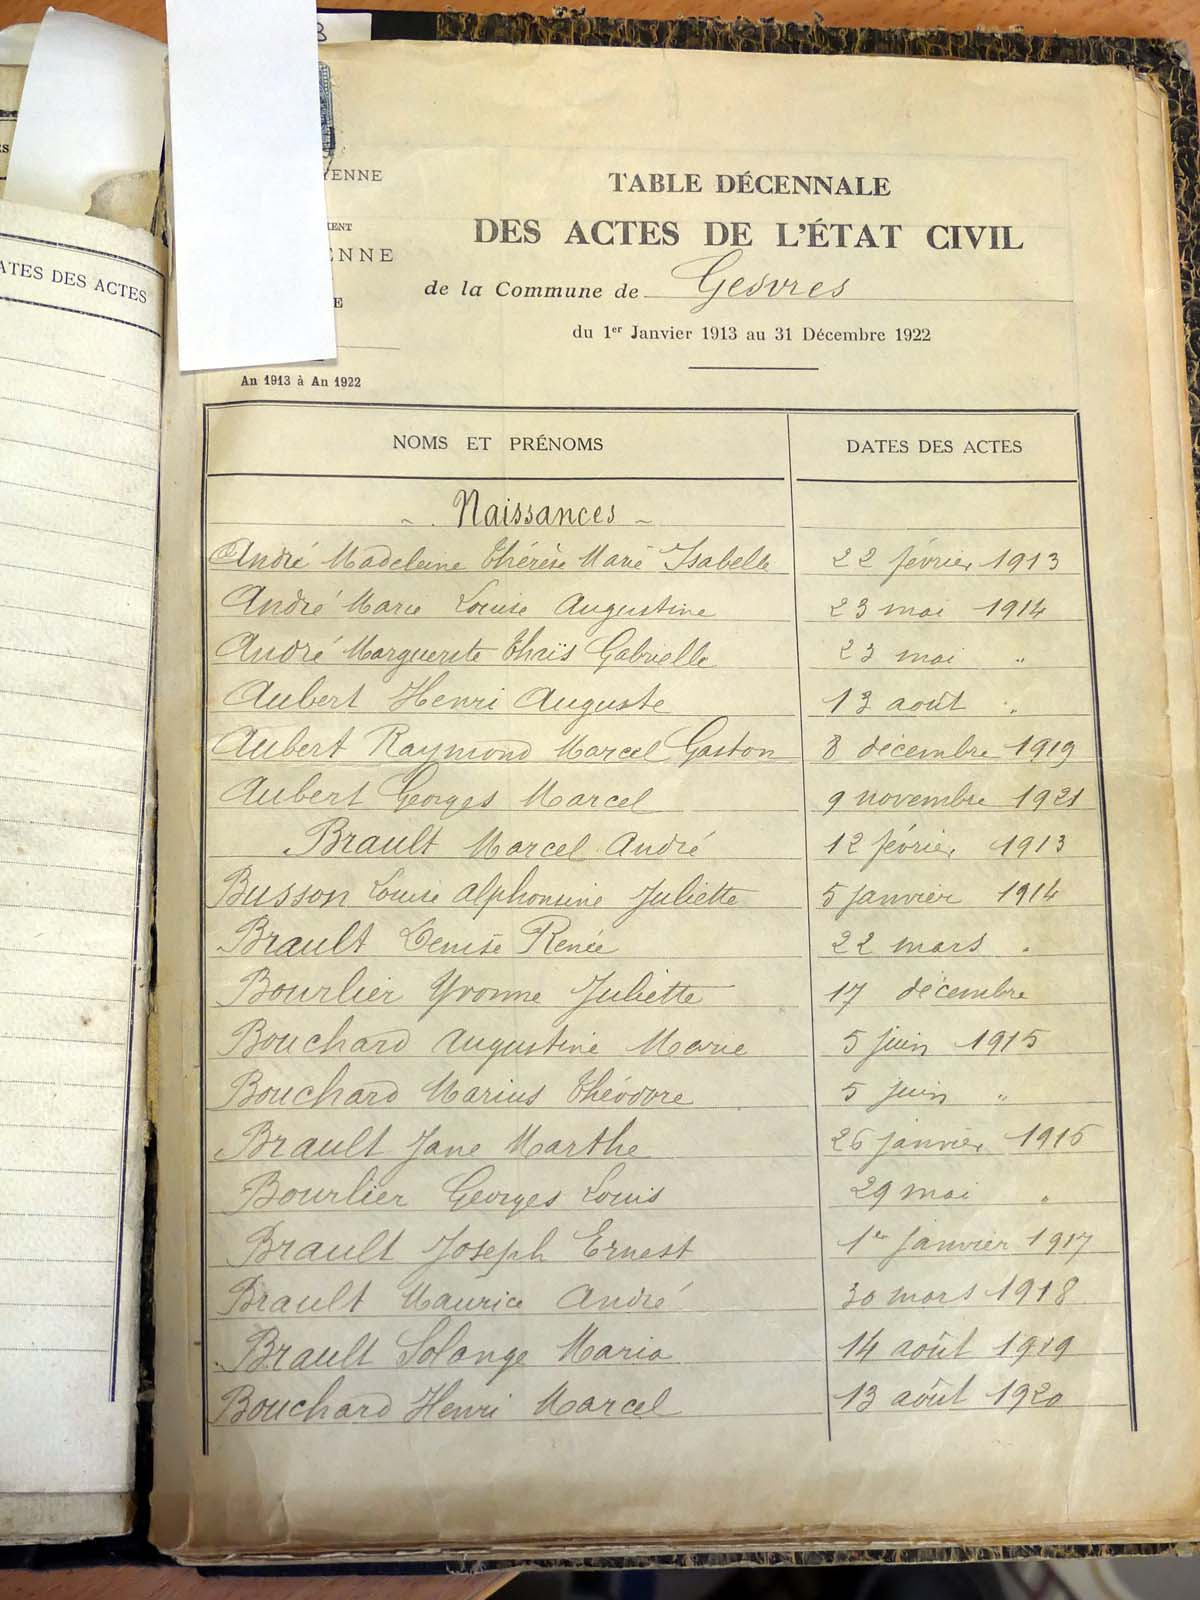 8
ES
DATES DES ACTES
YENNE
MENT
ENNE
E
TABLE DÉCENNALE
DES ACTES DE L'ÉTAT CIVIL
de la Commune de Gesvres
du 1er Janvier 1913 au 31 Décembre 1922
An 1913 à An 1922
NOMS ET PRÉNOMS DATES DES ACTES
Naissances
André Madeleine Thérèse Marie Isabelle 22 février 1913
André Marie Louise Augustine 23 mai 1914
André Marguerite Thaïs Gabrielle 23 mai "
Aubert Henri Auguste 13 août "
Aubert Raymond Marcel Gaston 8 décembre 1919
Aubert Georges Marcel 9 novembre 1921
Brault Marcel André 12 février 1913
Busson Louise Alphonsine Juliette 5 janvier 1914
Brault Denise Renée 22 mars "
Bourlier Yvonne Juliette 17 décembre
Bouchard Augustine Marie 5 juin 1915
Bouchard Marius Théodore 5 juin "
Brault Jane Marthe 26 janvier 1916
Bourlier Georges Louis 29 mai "
Brault Joseph Ernest 1er janvier 1917
Brault Maurice André 30 mars 1918
Brault Solange Maria 14 août 1919
Bouchard Henri Marcel 13 août 1920